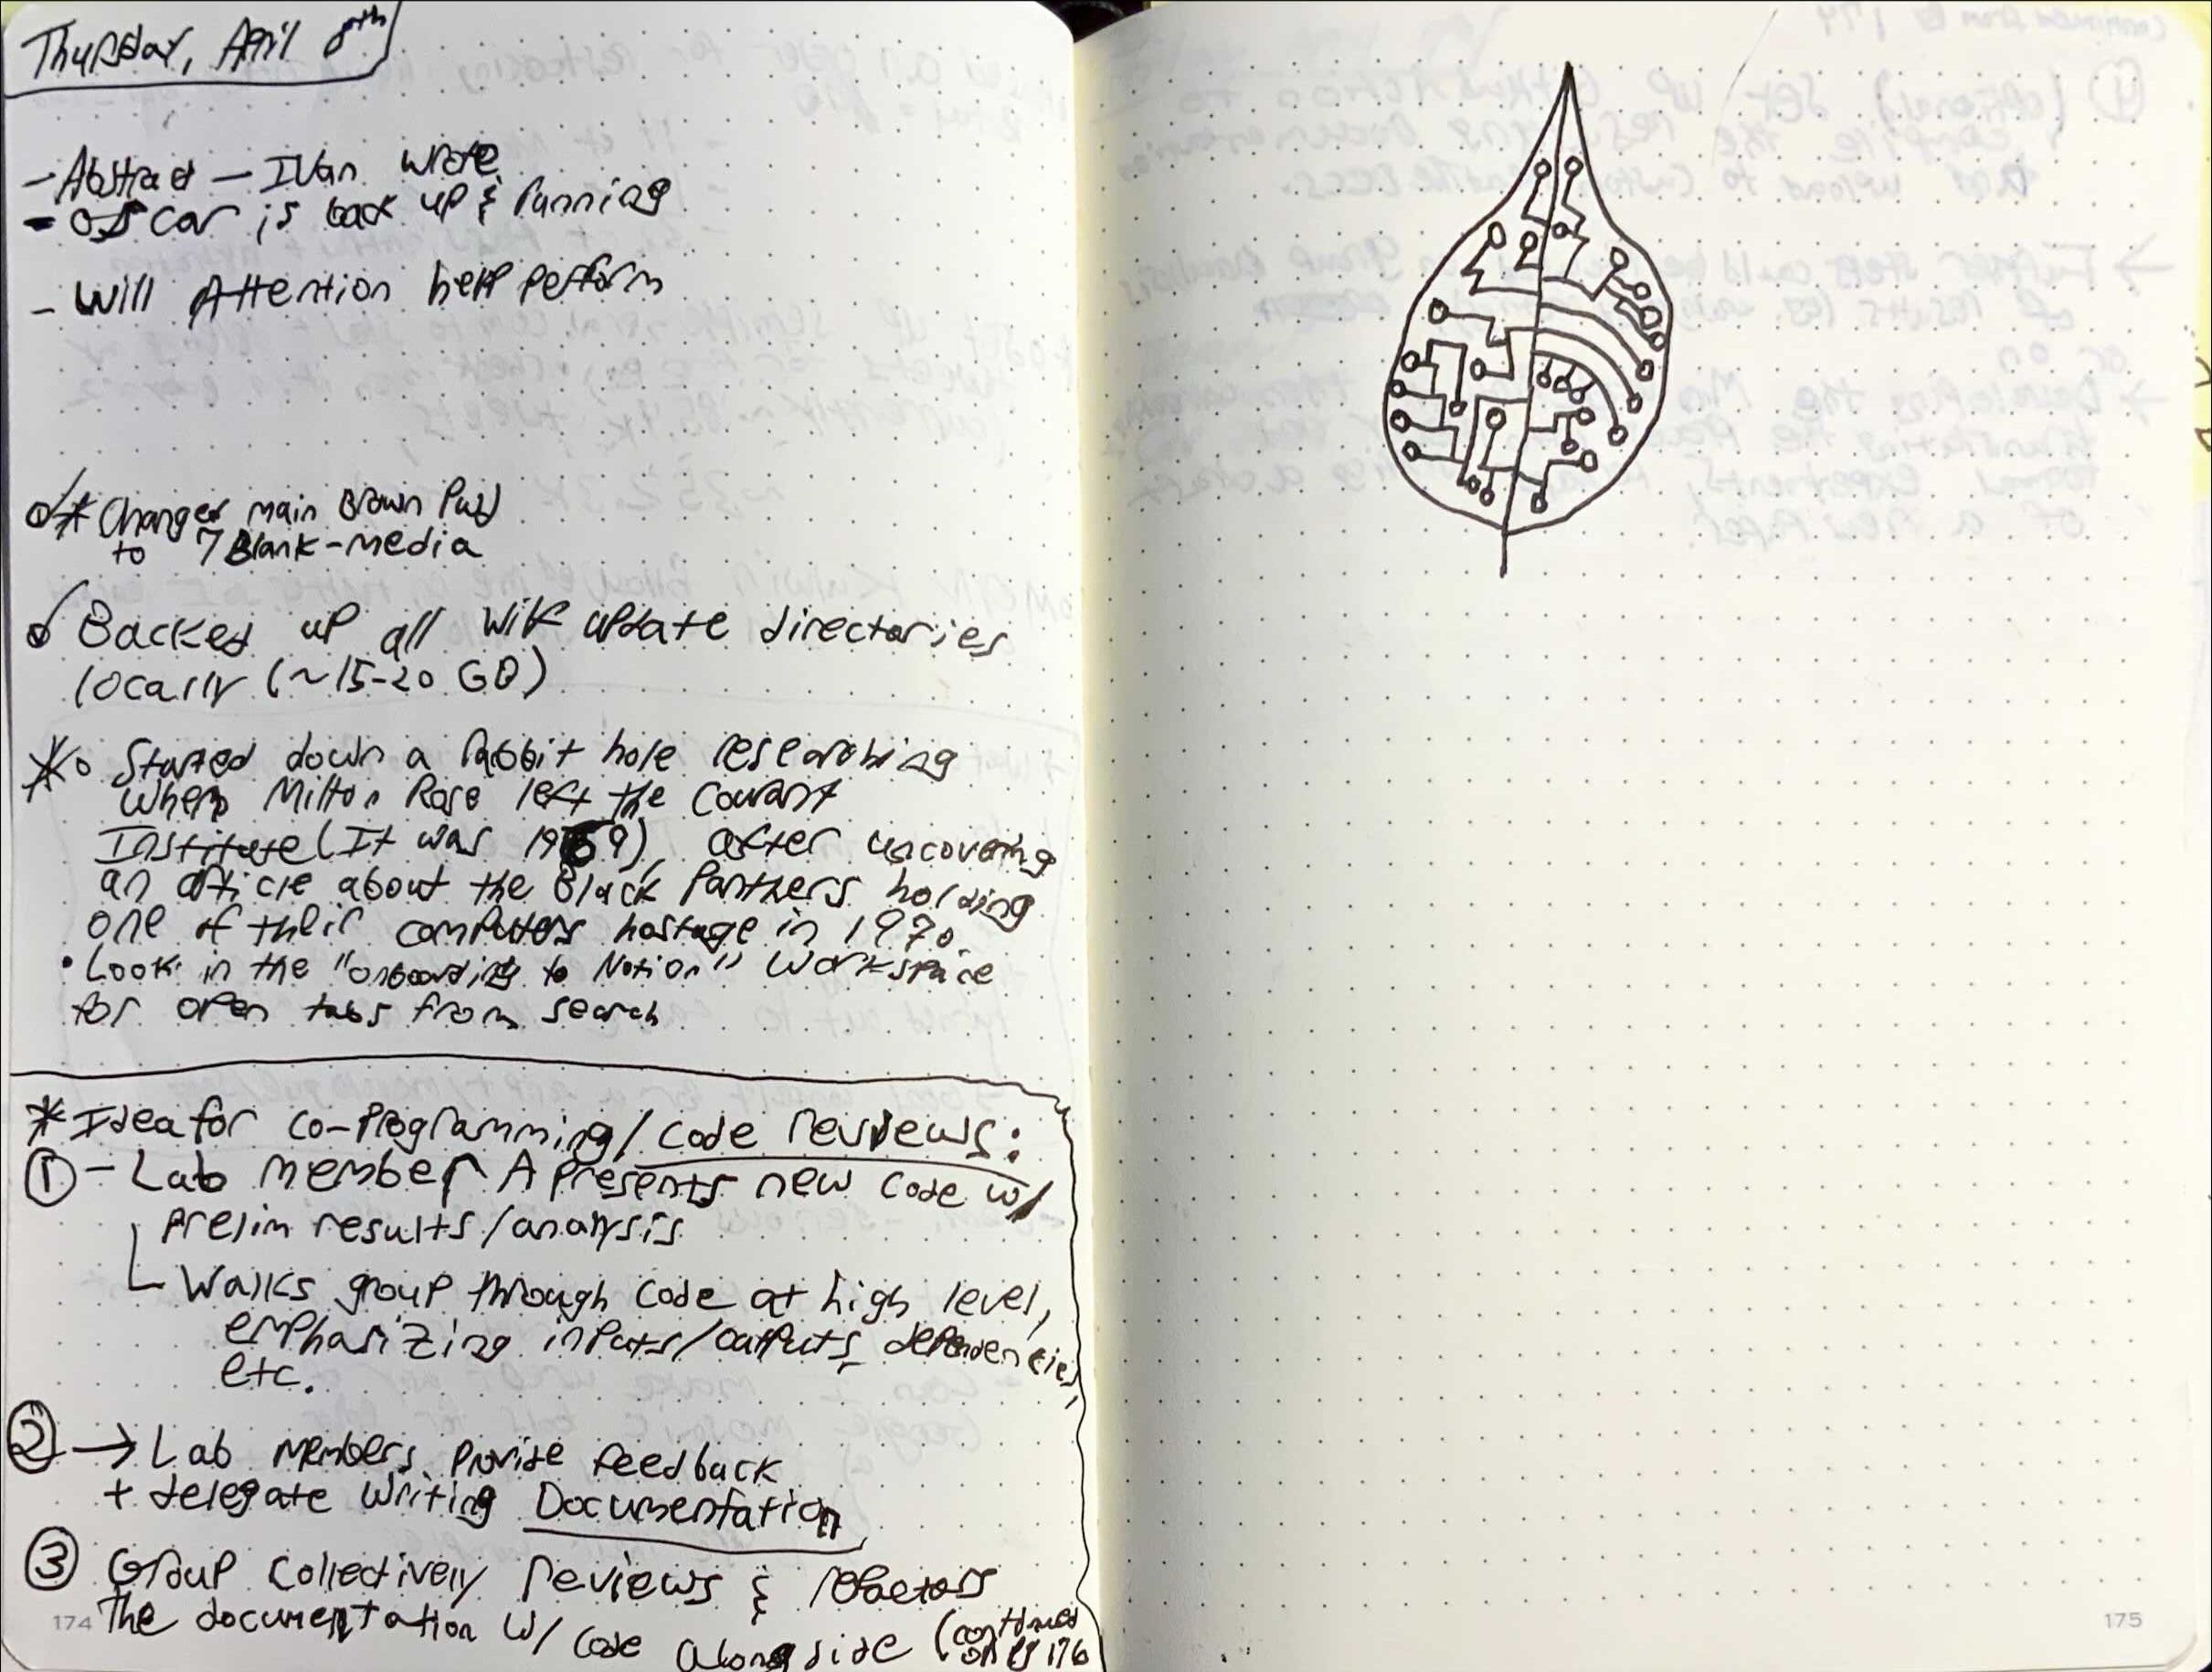 Thursday, April 8th
- Abstract - Ivan wrote
- Oscar is back up & running
- Will Attention help perform
* Changed main Brown Pwd
to 7Blank-media
Backed up all WIK update directories
locally (~15-20 GB)
* Started down a rabbit hole researching
when Milton Rose left the Courant
Institute (It was 1969), after uncovering
an article about the Black Panthers holding
one of their computers hostage in 1970.
• Look in the "onboarding to Notion" workspace
for open tabs from search
* Idea for co-programming/code reviews:
① - Lab member A presents new code w/
prelim results/analysis
Walks group through code at high level,
emphasizing inputs/outputs, dependencies,
etc.
② → Lab members provide feedback
+ delegate writing Documentation
③ Group collectively reviews & refactors
The documentation w/ code alongside (continued
on pg 176
174
175